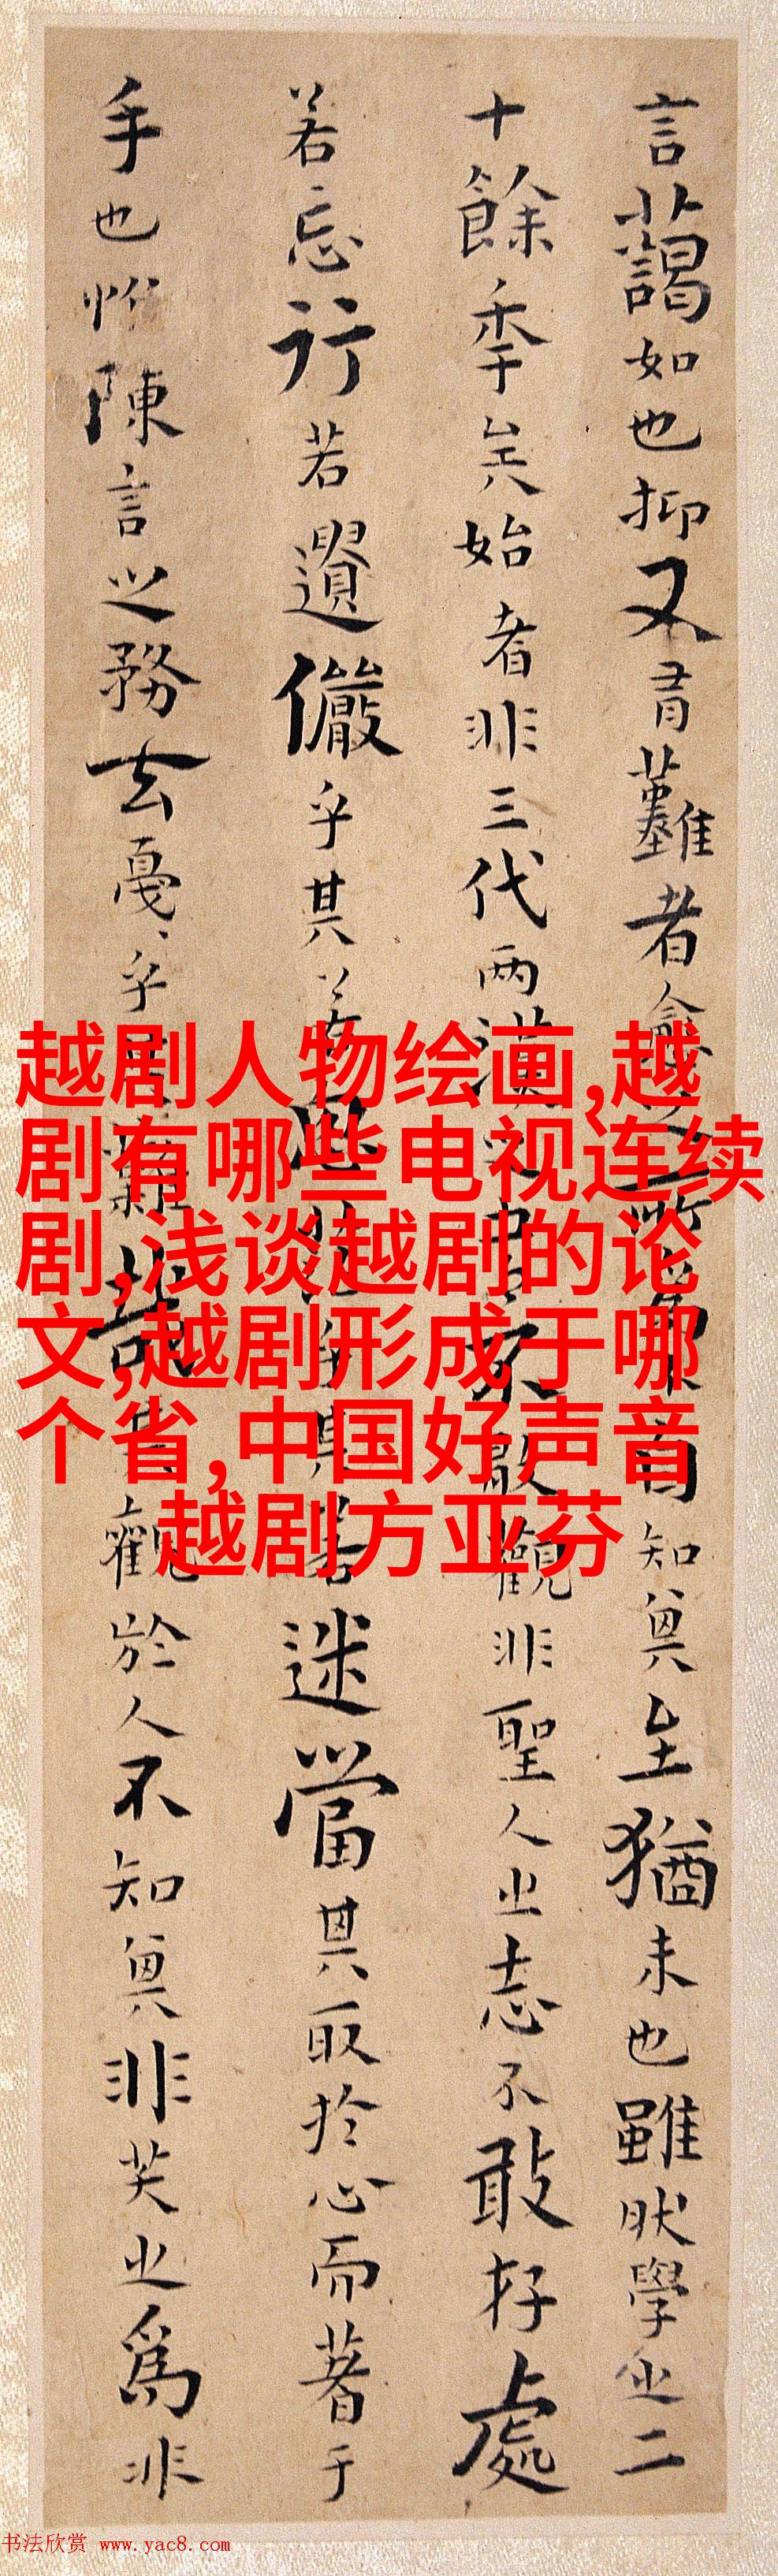 言藹如也抑又有難者愈之所為自知其至猶未也雖然學之二
十餘年矣始者非三代兩漢之書不敢觀非聖人之志不敢存處
若忘行若遺儼乎其若思茫乎其若迷當其取於心而著于
手也惟陳言之務去戛々乎其難哉其觀於人不知其非笑之為非
越剧人物绘画,越
剧有哪些电视连续
剧,浅谈越剧的论
文,越剧形成于哪
个省,中国好声音
越剧方亚芬
书法欣赏 www.yac8.com